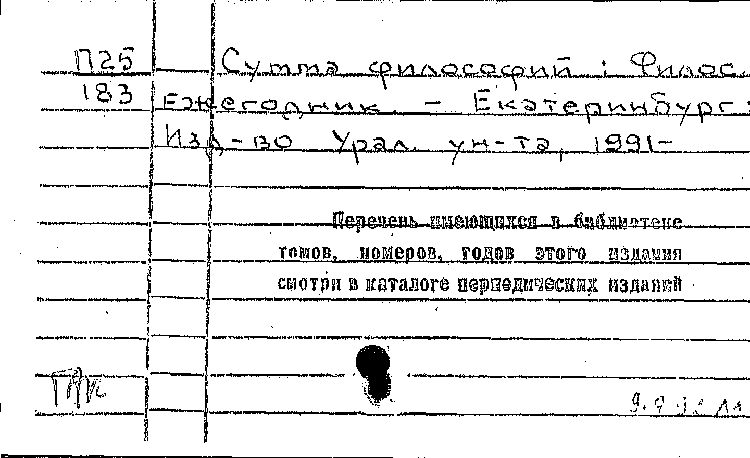 П25 Сумма философий : Филос.
183 ежегодник. – Екатеринбург:
Изд-во Урал. ун-та, 1991-
Перечень имеющихся в библиотеке
томов, номеров, годов этого издания
смотри в каталоге периодических изданий